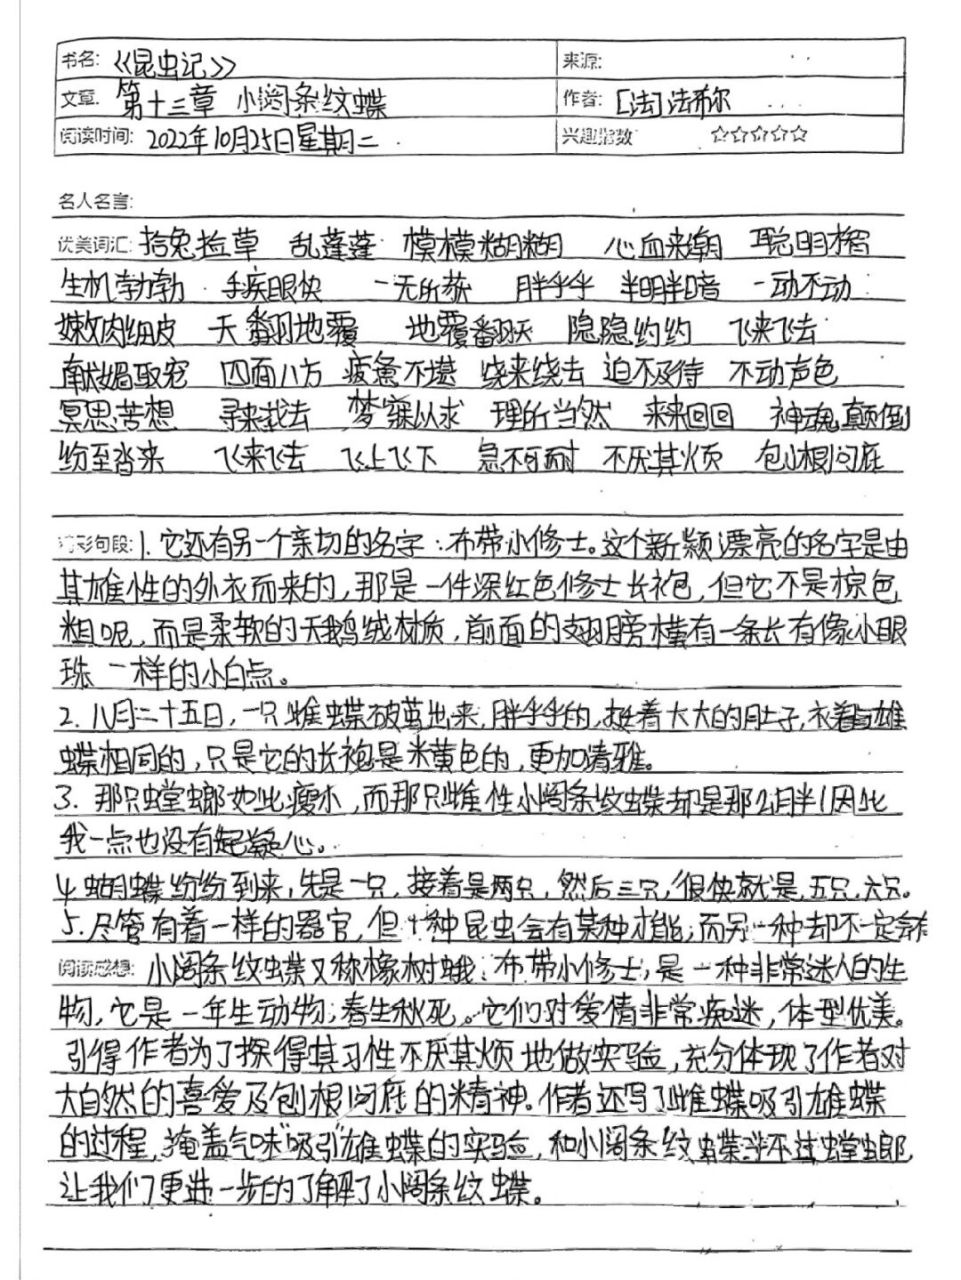 书名: 《昆虫记》 来源:
文章: 第十三章 小阔条纹蝶 作者: [法]法布尔
阅读时间: 2022年10月25日星期二 兴趣指数 ☆☆☆☆☆
名人名言:
优美词汇: 拾兔捡草 乱蓬蓬 模模糊糊 心血来潮 聪明
生机勃勃 手疾眼快 一无所获 胖乎乎 半明半暗 一动不动
嫩肉细皮 天翻地覆 地覆翻天 隐隐约约 飞来飞去
献媚取宠 四面八方 疲惫不堪 绕来绕去 迫不及待 不动声色
冥思苦想 寻来找去 梦寐以求 理所当然 来来回回 神魂颠倒
纷至沓来 飞来飞去 飞上飞下 急不可耐 不厌其烦 刨根问底
精彩句段: 1. 它还有另一个亲切的名字:布带小修士。这个新颖漂亮的名字是由
其雄性的外衣而来的,那是一件深红色修士长袍,但它不是棕色
粗呢,而是柔软的天鹅绒材质,前面的翅膀横有一条长有像小眼
珠一样的小白点。
2. 八月二十五日,一只雌蝶破茧出来,胖乎乎的,挺着大大的肚子,衣着与雄
蝶相同的,只是它的长袍是米黄色的,更加清雅。
3. 那只螳螂如此瘦小,而那只雌性小阔条纹蝶却是那么胖!因此
我一点也没有起疑心。
4. 蝴蝶纷纷到来,先是一只,接着是两只,然后三只,很快就是五只,六只。
5. 尽管有着一样的器官,但一种昆虫会有某种才能,而另一种却不一定会有
阅读感想: 小阔条纹蝶又称橡树蛾、布带小修士,是一种非常迷人的生
物,它是一年生动物;春生秋死。它们对爱情非常痴迷,体型优美。
引得作者为了探得其习性不厌其烦地做实验,充分体现了作者对
大自然的喜爱及刨根问底的精神。作者还写了雌蝶吸引雄蝶
的过程,掩盖气味"吸引"雄蝶的实验,和小阔条纹蝶斗不过螳螂,
让我们更进一步的了解了小阔条纹蝶。